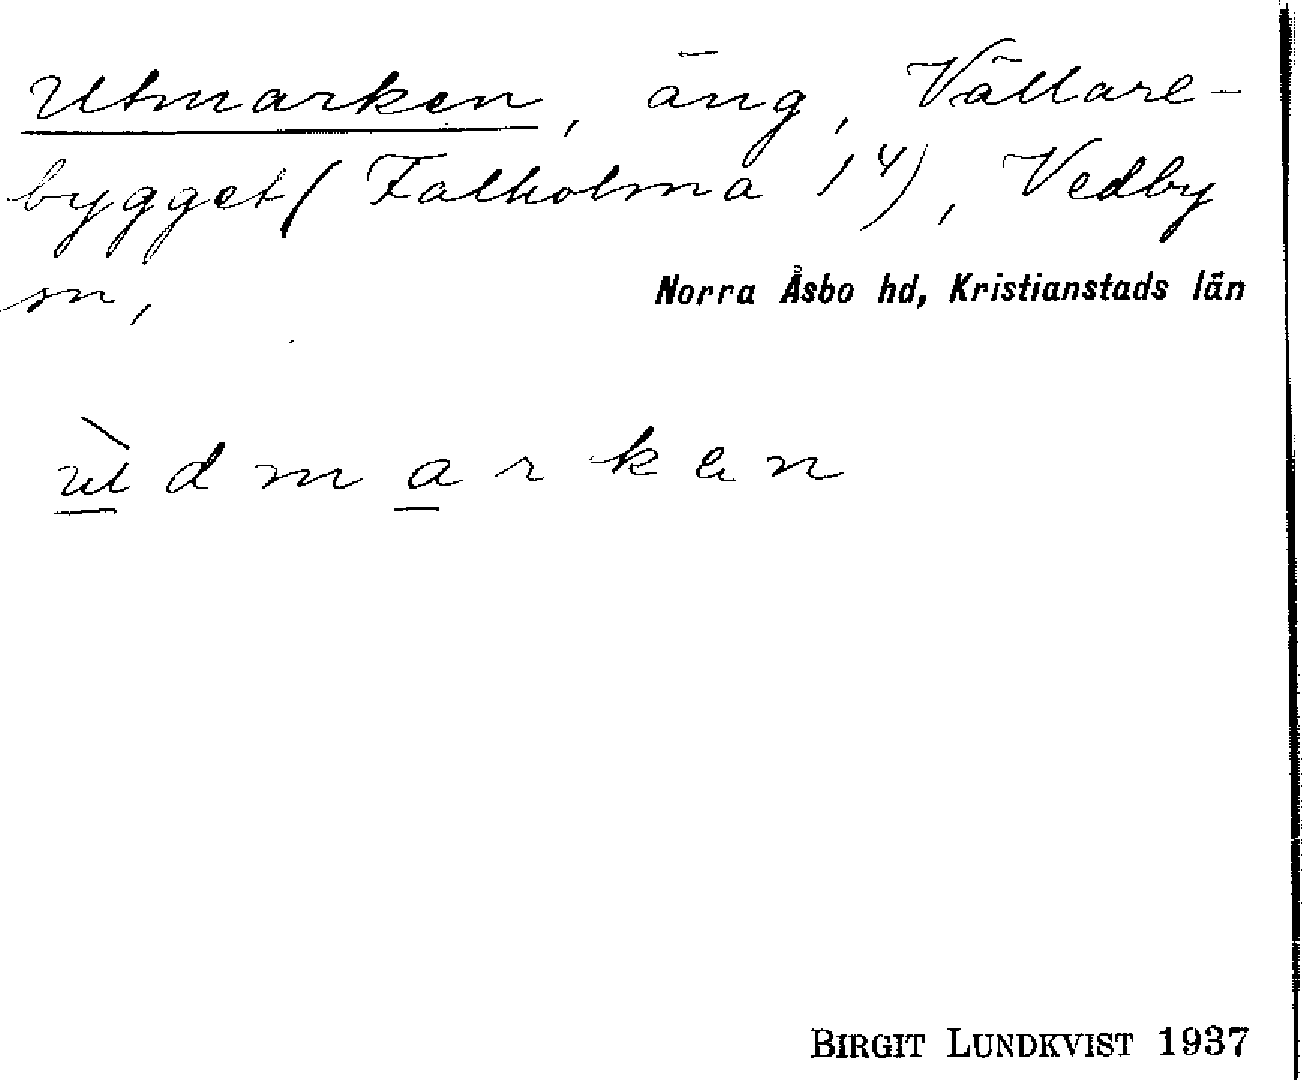 Utmarken, äng, Vällare-
bygget (Falholma 1⁴), Vedby
sn, Norra Åsbo hd, Kristianstads län
ùdmarken
BIRGIT LUNDKVIST 1937